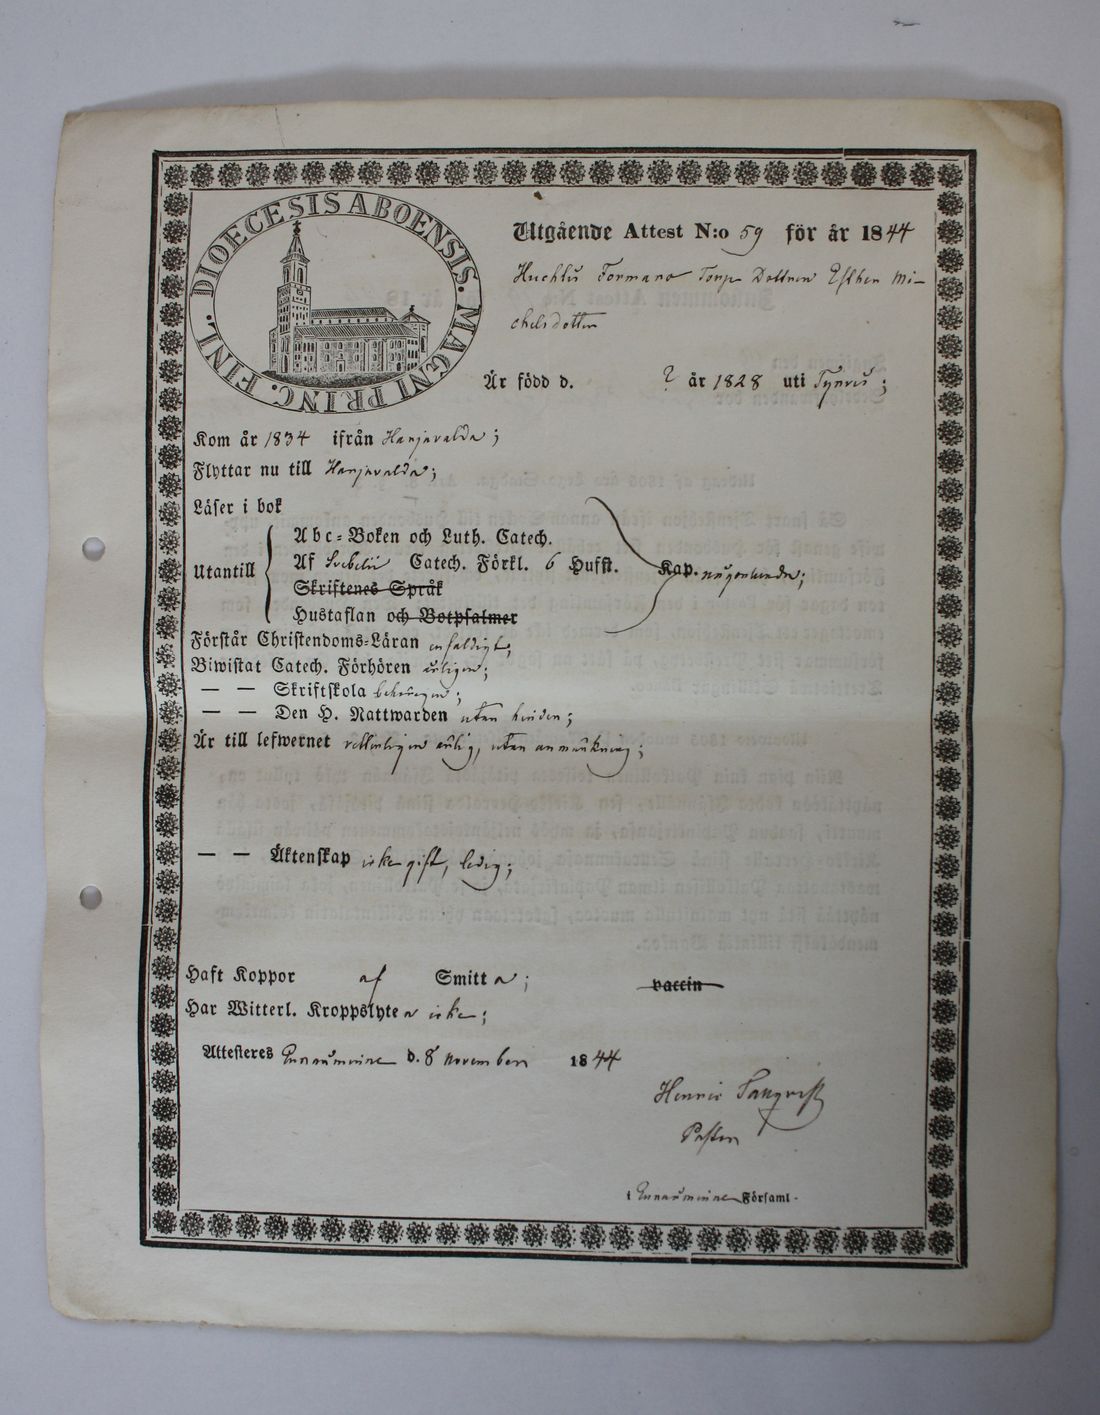 DIOECESIS ABOENSIS. MAGNI PRINC. FINL.
Utgående Attest N:o 59 för år 1844
Torp Dottren Esther Mi-
chelsdotter
Är född d. ? år 1828 uti Tyrvis;
Kom år 1834 ifrån Harjavalda;
Flyttar nu till Harjavalda;
Läser i bok
Utantill
Abc-Boken och Luth. Catech.
Af Svebelii Catech. Förkl. 6 Hufst. Kap. någorlunda;
Skriftenes Språk
Hustaflan och Botpsalmer
Förstår Christendoms-Läran enfaldigt;
Biwistat Catech. Förhören årligen;
— — Skriftskola behörigen;
— — Den H. Nattwarden utan hinder;
Är till lefwernet ärlig, utan anmärkning;
— — Äktenskap icke gift, ledig;
Haft Koppor af Smitta; vaccin
Har Witterl. Kroppslyte icke;
Attesteres Euraåminne d. 8 November 1844
Henric
Pastor
i Euraåminne Församl.